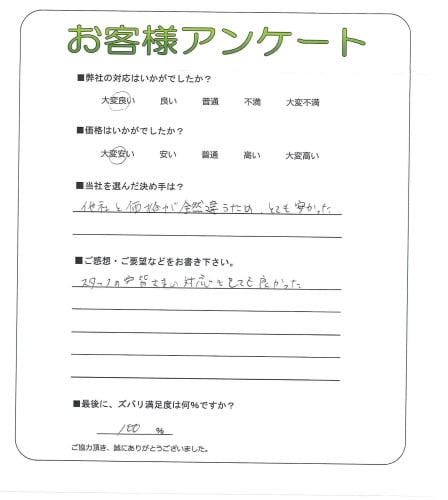 お客様アンケート
■弊社の対応はいかがでしたか？
大変良い 良い 普通 不満 大変不満
■価格はいかがでしたか？
大変安い 安い 普通 高い 大変高い
■当社を選んだ決め手は？
他社と価格が全然違うため、とても安かった
■ご感想・ご要望などをお書き下さい。
スタッフの皆さまの対応もとても良かった
■最後に、ズバリ満足度は何%ですか？
100 %
ご協力頂き、誠にありがとうございました。